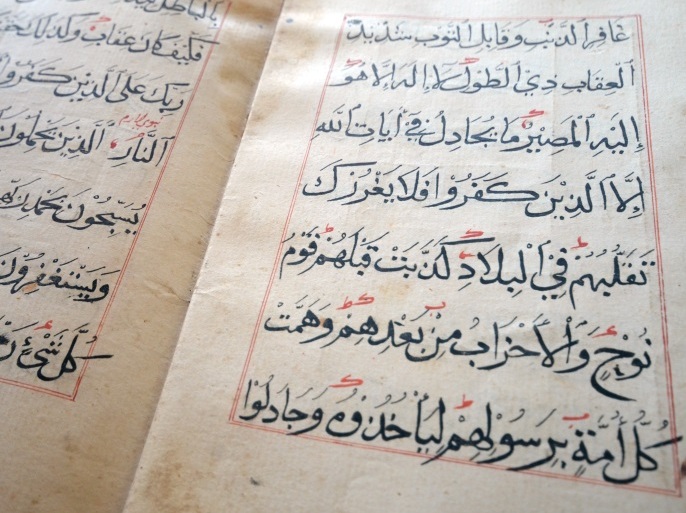 غَافِرِ الذَّنْبِ وَقَابِلِ التَّوْبِ شَدِيدِ
الْعِقَابِ ذِي الطَّوْلِ لَا إِلَهَ إِلَّا هُوَ
إِلَيْهِ الْمَصِيرُ مَا يُجَادِلُ فِي آيَاتِ اللَّهِ
إِلَّا الَّذِينَ كَفَرُوا فَلَا يَغْرُرْكَ
تَقَلُّبُهُمْ فِي الْبِلَادِ كَذَّبَتْ قَبْلَهُمْ قَوْمُ
نُوحٍ وَالْأَحْزَابُ مِنْ بَعْدِهِمْ وَهَمَّتْ
كُلُّ أُمَّةٍ بِرَسُولِهِمْ لِيَأْخُذُوهُ وَجَادَلُوا
بِالْبَاطِلِ
فَكَيْفَ كَانَ عِقَابِ وَكَذَلِكَ
رَبِّكَ عَلَى الَّذِينَ كَفَرُوا
النَّارِ الَّذِينَ يَحْمِلُونَ
يُسَبِّحُونَ بِحَمْدِ
وَيَسْتَغْفِرُونَ
كُلَّ شَيْءٍ